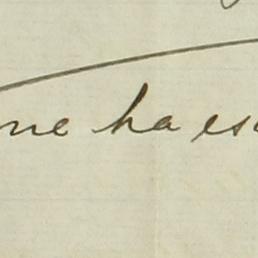 ne ha es